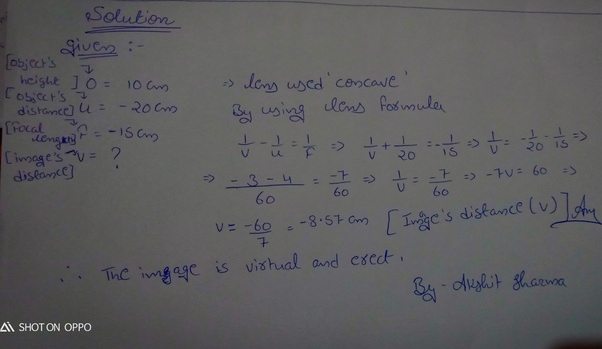 Solution
given :-
[object's height] O = 10 cm
[object's distance] u = -20 cm
[focal length] f = -15 cm
[image's distance] v = ?
⇒ lens used 'concave'
By using lens formula
1/v - 1/u = 1/f ⇒ 1/v + 1/20 = -1/15 ⇒ 1/v = -1/20 - 1/15 ⇒
⇒ -3-4/60 = -7/60 ⇒ 1/v = -7/60 ⇒ -7v = 60 ⇒
v = -60/7 = -8.57 cm [Image's distance (v)] Ans
∴ The imgage is virtual and erect.
By - Akshit Sharma
SHOT ON OPPO